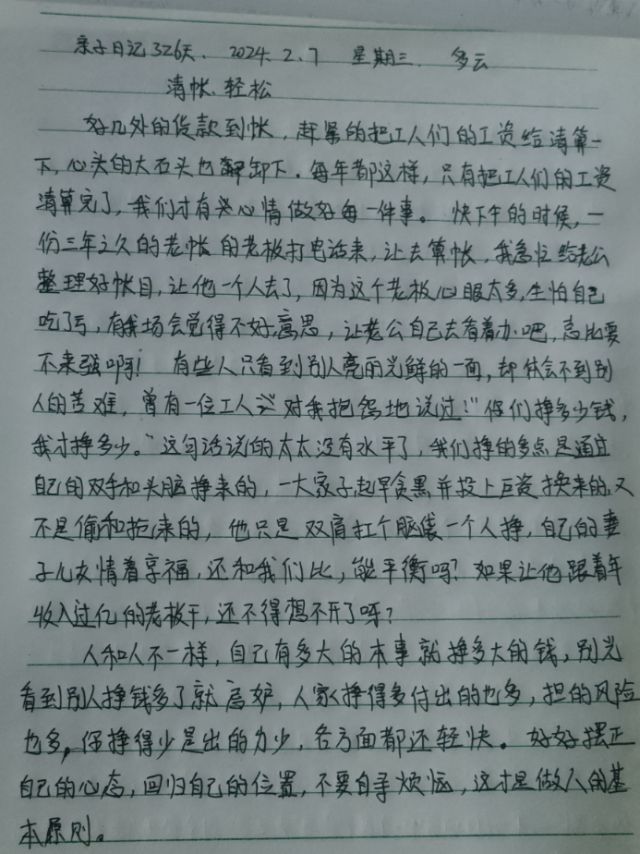 亲子日记326天. 2024.2.7 星期三. 多云
清帐.轻松
好几外的货款到帐，赶紧的把工人们的工资给清算一
下，心头的大石头也卸下.每年都这样，只有把工人们的工资
清算完了，我们才有兴心情做好每一件事。快下午的时候，一
份三年之久的老帐的老板打电话来，让去算帐，我急忙给老公
整理好帐目，让他一个人去了，因为这个老板心眼太多，生怕自己
吃了亏，有我场会觉得不好意思，让老公自己去看着办吧，总比要
不来强啊！有些人只看到别人亮丽光鲜的一面，却体会不到别
人的苦难，曾有一位工人对我抱怨地说过："你们挣多少钱，
我才挣多少。"这句话说的太太没有水平了，我们挣的多点是通过
自己的双手和头脑挣来的，一大家子起早贪黑并投上巨资换来的，又
不是偷和抢来的，他只是双肩扛个脑袋一个人挣，自己的妻
子儿女情着享福，还和我们比，能平衡吗？如果让他跟着年
收入过亿的老板干，还不得想不开了呀？
人和人不一样，自己有多大的本事就挣多大的钱，别光
看到别人挣钱多了就嫉妒，人家挣得多付出的也多，担的风险
也多，你挣得少是出的力少，各方面都还轻快。好好摆正
自己的心态，回归自己的位置，不要自寻烦恼，这才是做人的基
本原则。